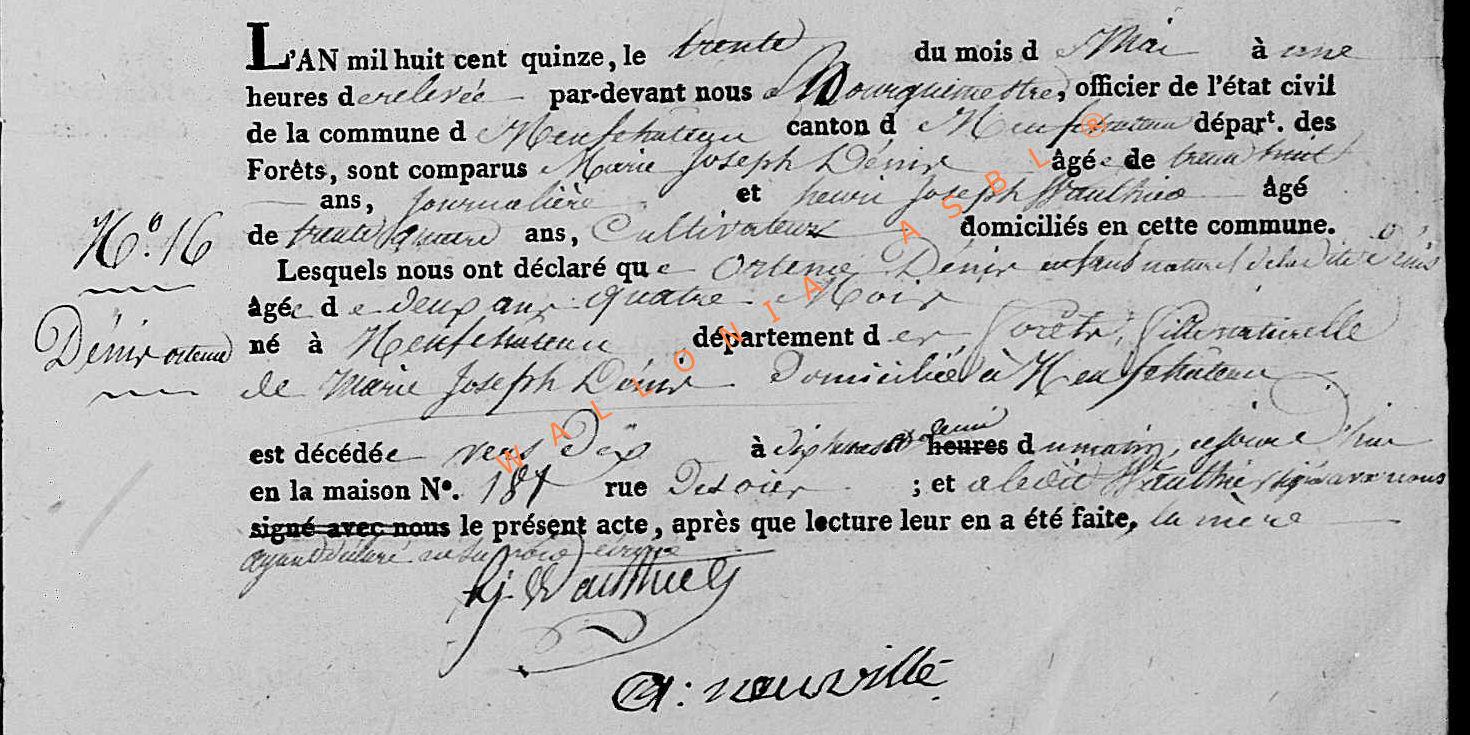 L'AN mil huit cent quinze, le trente du mois d Mai à une
heures de relevée par-devant nous Bourguemettre, officier de l'état civil
de la commune d Neufchateau canton d Neufchateau départ. des
Forêts, sont comparus Marie Joseph Dénis âgée de trente huit
ans, Journalière et henri Joseph Wauthier âgé
de trente quatre ans, Cultivateur domiciliés en cette commune.
N.° 16
Lesquels nous ont déclaré que Ortence Dénis enfant naturel de la dite Dénis
âgée de deux ans quatre Mois
Dénis ortence
né à Neufchateau département des forêts, fille naturelle
de Marie Joseph Dénis Domiciliée à Neufchâteau
est décédée vers Dix à dix heures et demi heures du matin, ce jour d'hui
en la maison N°. 187 rue ; et a ledit Wauthier signé avec nous
signé avec nous le présent acte, après que lecture leur en a été faite, la mère
ayant déclaré ne savoir écrire
hj. Wauthier
neuville
WALLONIA ASBL ®